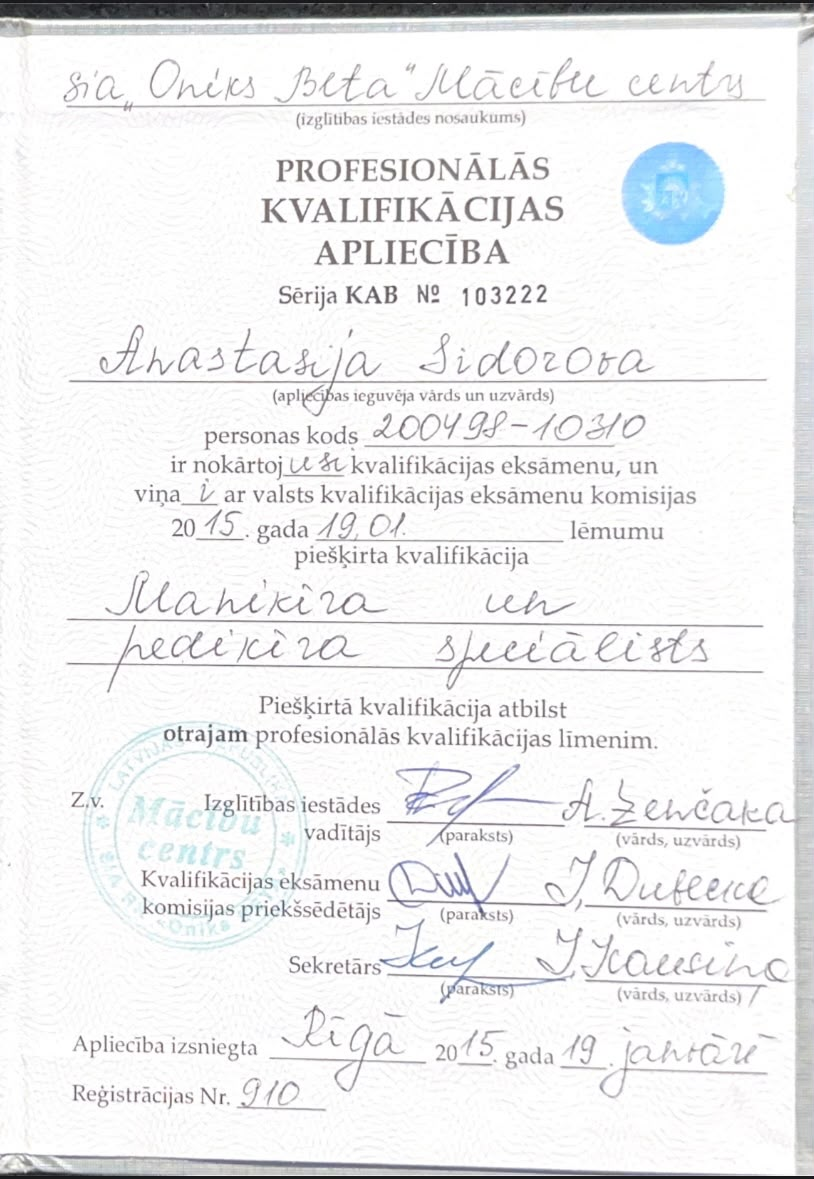 sia „Oniks Beta" Mācību centrs
(izglītības iestādes nosaukums)
PROFESIONĀLĀS
KVALIFIKĀCIJAS
APLIECĪBA
Sērija KAB № 103222
Anastasija Sidorova
(apliecības ieguvēja vārds un uzvārds)
personas kods 200498-10310
ir nokārtojusi kvalifikācijas eksāmenu, un
viņai ar valsts kvalifikācijas eksāmenu komisijas
2015. gada 19.01. lēmumu
piešķirta kvalifikācija
Manikīra un
pedikīra speciālists
Piešķirtā kvalifikācija atbilst
otrajam profesionālās kvalifikācijas līmenim.
Z.v. Izglītības iestādes
vadītājs
(paraksts) A. Ženčaka
(vārds, uzvārds)
Mācību
centrs
Kvalifikācijas eksāmenu
komisijas priekšsēdētājs
(paraksts) I.
(vārds, uzvārds)
Sekretārs
(paraksts) I.
(vārds, uzvārds)
Apliecība izsniegta Rīgā 2015. gada 19. janvārī
Reģistrācijas Nr. 910